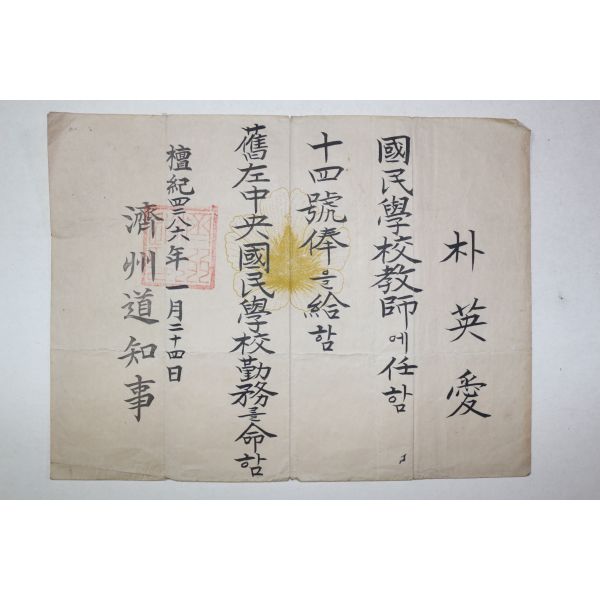 朴英愛
國民學校教師에任함
十四號俸을給함
舊左中央國民學校勤務를命함
檀紀四二八六年 一月二十四日
濟州道知事